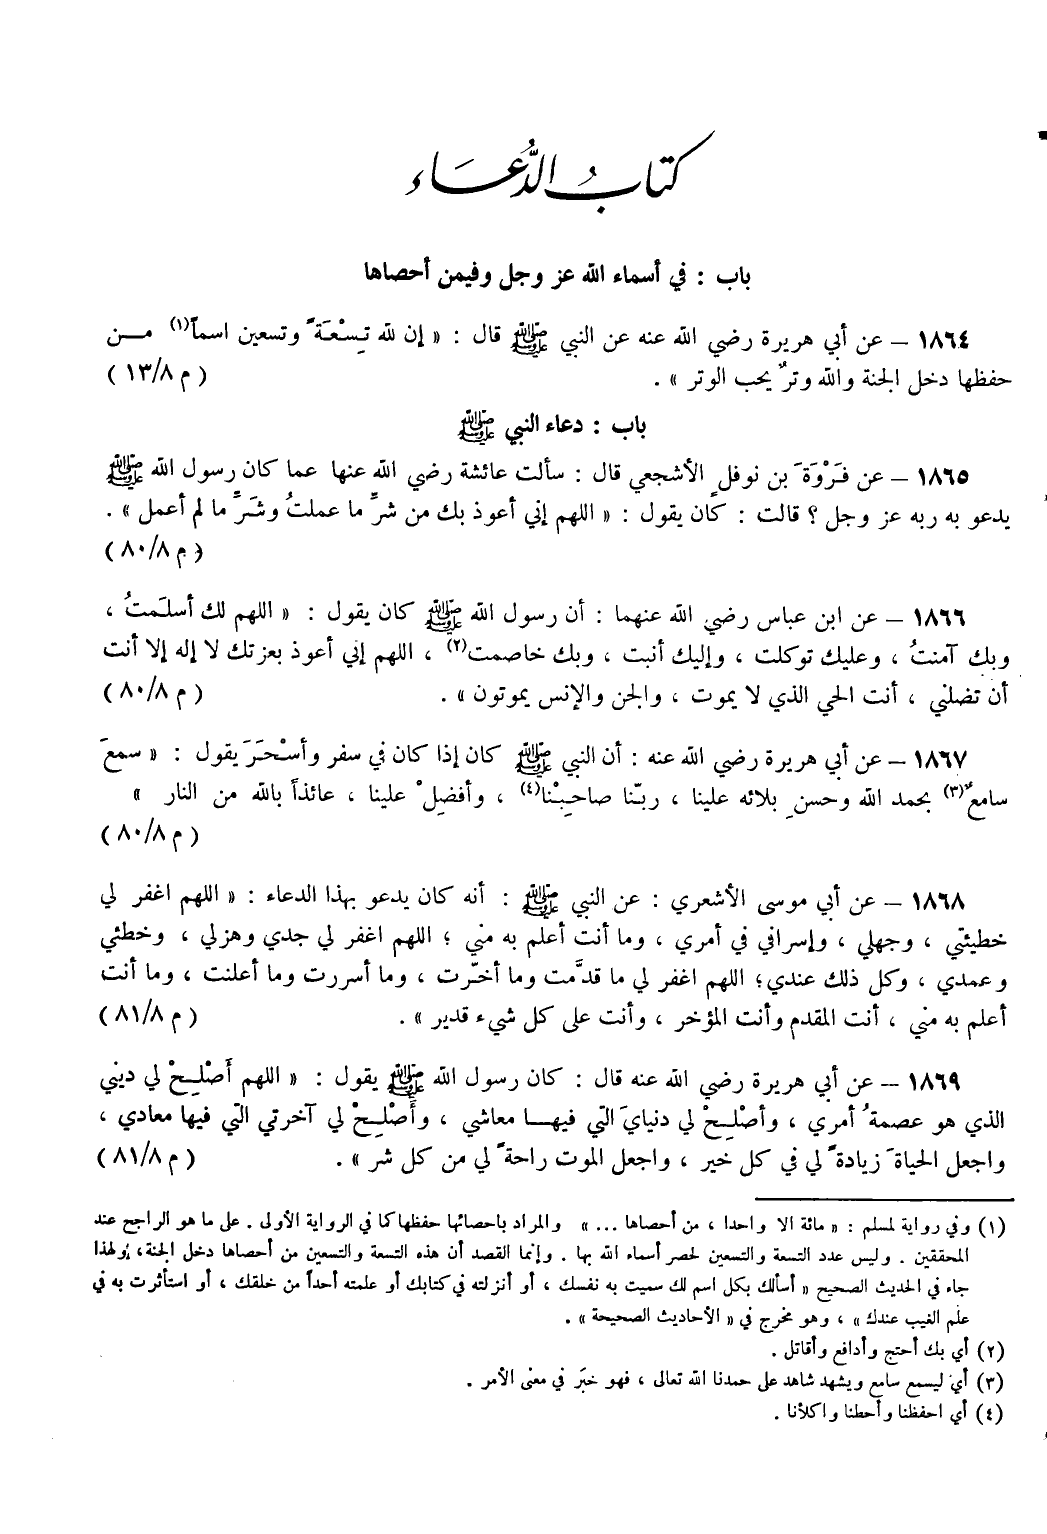 كتابُ الدُّعَاء
باب : في أسماء الله عز وجل وفيمن أحصاها
١٨٦٤ – عن أبي هريرة رضي الله عنه عن النبي ﷺ قال : « إن لله تِسْعَةً وتسعين اسماً(١) مـن
حفظها دخل الجنة والله وترٌ يحب الوتر » . ( م ١٣/٨ )
باب : دعاء النبي ﷺ
١٨٦٥ – عن فَرْوَةَ بن نوفلٍ الأشجعي قال : سألت عائشة رضي الله عنها عما كان رسول الله ﷺ
يدعو به ربه عز وجل ؟ قالت : كان يقول : « اللهم إني أعوذ بك من شرِّ ما عملتُ وشَرِّ ما لم أعمل » .
( م ٨٠/٨ )
١٨٦٦ – عن ابن عباس رضي الله عنهما : أن رسول الله ﷺ كان يقول : « اللهم لك أسلَمتُ ،
وبك آمنتُ ، وعليك توكلت ، وإليك أنبت ، وبك خاصمت(٢) ، اللهم إني أعوذ بعزتك لا إله إلا أنت
أن تضلني ، أنت الحي الذي لا يموت ، والجن والإنس يموتون » . ( م ٨٠/٨ )
١٨٦٧ – عن أبي هريرة رضي الله عنه : أن النبي ﷺ كان إذا كان في سفر وأسْحَرَ يقول : « سمعَ
سامعٌ(٣) بحمد الله وحسنِ بلائه علينا ، ربّنا صاحِبْنا(٤) ، وأفضِلْ علينا ، عائذاً بالله من النار »
( م ٨٠/٨ )
١٨٦٨ – عن أبي موسى الأشعري : عن النبي ﷺ : أنه كان يدعو بهذا الدعاء : « اللهم اغفر لي
خطيئتي ، وجهلي ، وإسرافي في أمري ، وما أنت أعلم به مني ؛ اللهم اغفر لي جدي وهزلي ، وخطئي
وعمدي ، وكل ذلك عندي؛ اللهم اغفر لي ما قدَّمت وما أخّرت ، وما أسررت وما أعلنت ، وما أنت
أعلم به مني ، أنت المقدم وأنت المؤخر ، وأنت على كل شيء قدير » . ( م ٨١/٨ )
١٨٦٩ – عن أبي هريرة رضي الله عنه قال : كان رسول الله ﷺ يقول : « اللهم أَصْلِحْ لي ديني
الذي هو عصمةُ أمري ، وأصْلِحْ لي دنيايَ التي فيهـا معاشي ، وأَصْلِحْ لي آخرتي التي فيها معادي ،
واجعل الحياةَ زيادةً لي في كل خير ، واجعل الموت راحةً لي من كل شر » . ( م ٨١/٨ )
(١) وفي رواية لمسلم : « مائة الا واحدا ، من أحصاها ... » والمراد باحصائها حفظها كما في الرواية الأولى . على ما هو الراجح عند
المحققين . وليس عدد التسعة والتسعين لحصر أسماء الله بها . وإنما القصد أن هذه التسعة والتسعين من أحصاها دخل الجنة، ولهذا
جاء في الحديث الصحيح « أسألك بكل اسم لك سميت به نفسك ، أو أنزلته في كتابك أو علمته أحداً من خلقك ، أو استأثرت به في
علم الغيب عندك » ، وهو مخرج في « الأحاديث الصحيحة » .
(٢) أي بك أحتج وأدافع وأقاتل .
(٣) أي ليسمع سامع ويشهد شاهد على حمدنا الله تعالى ، فهو خبَر في معنى الأمر .
(٤) أي احفظنا وأحطنا واكلأنا .